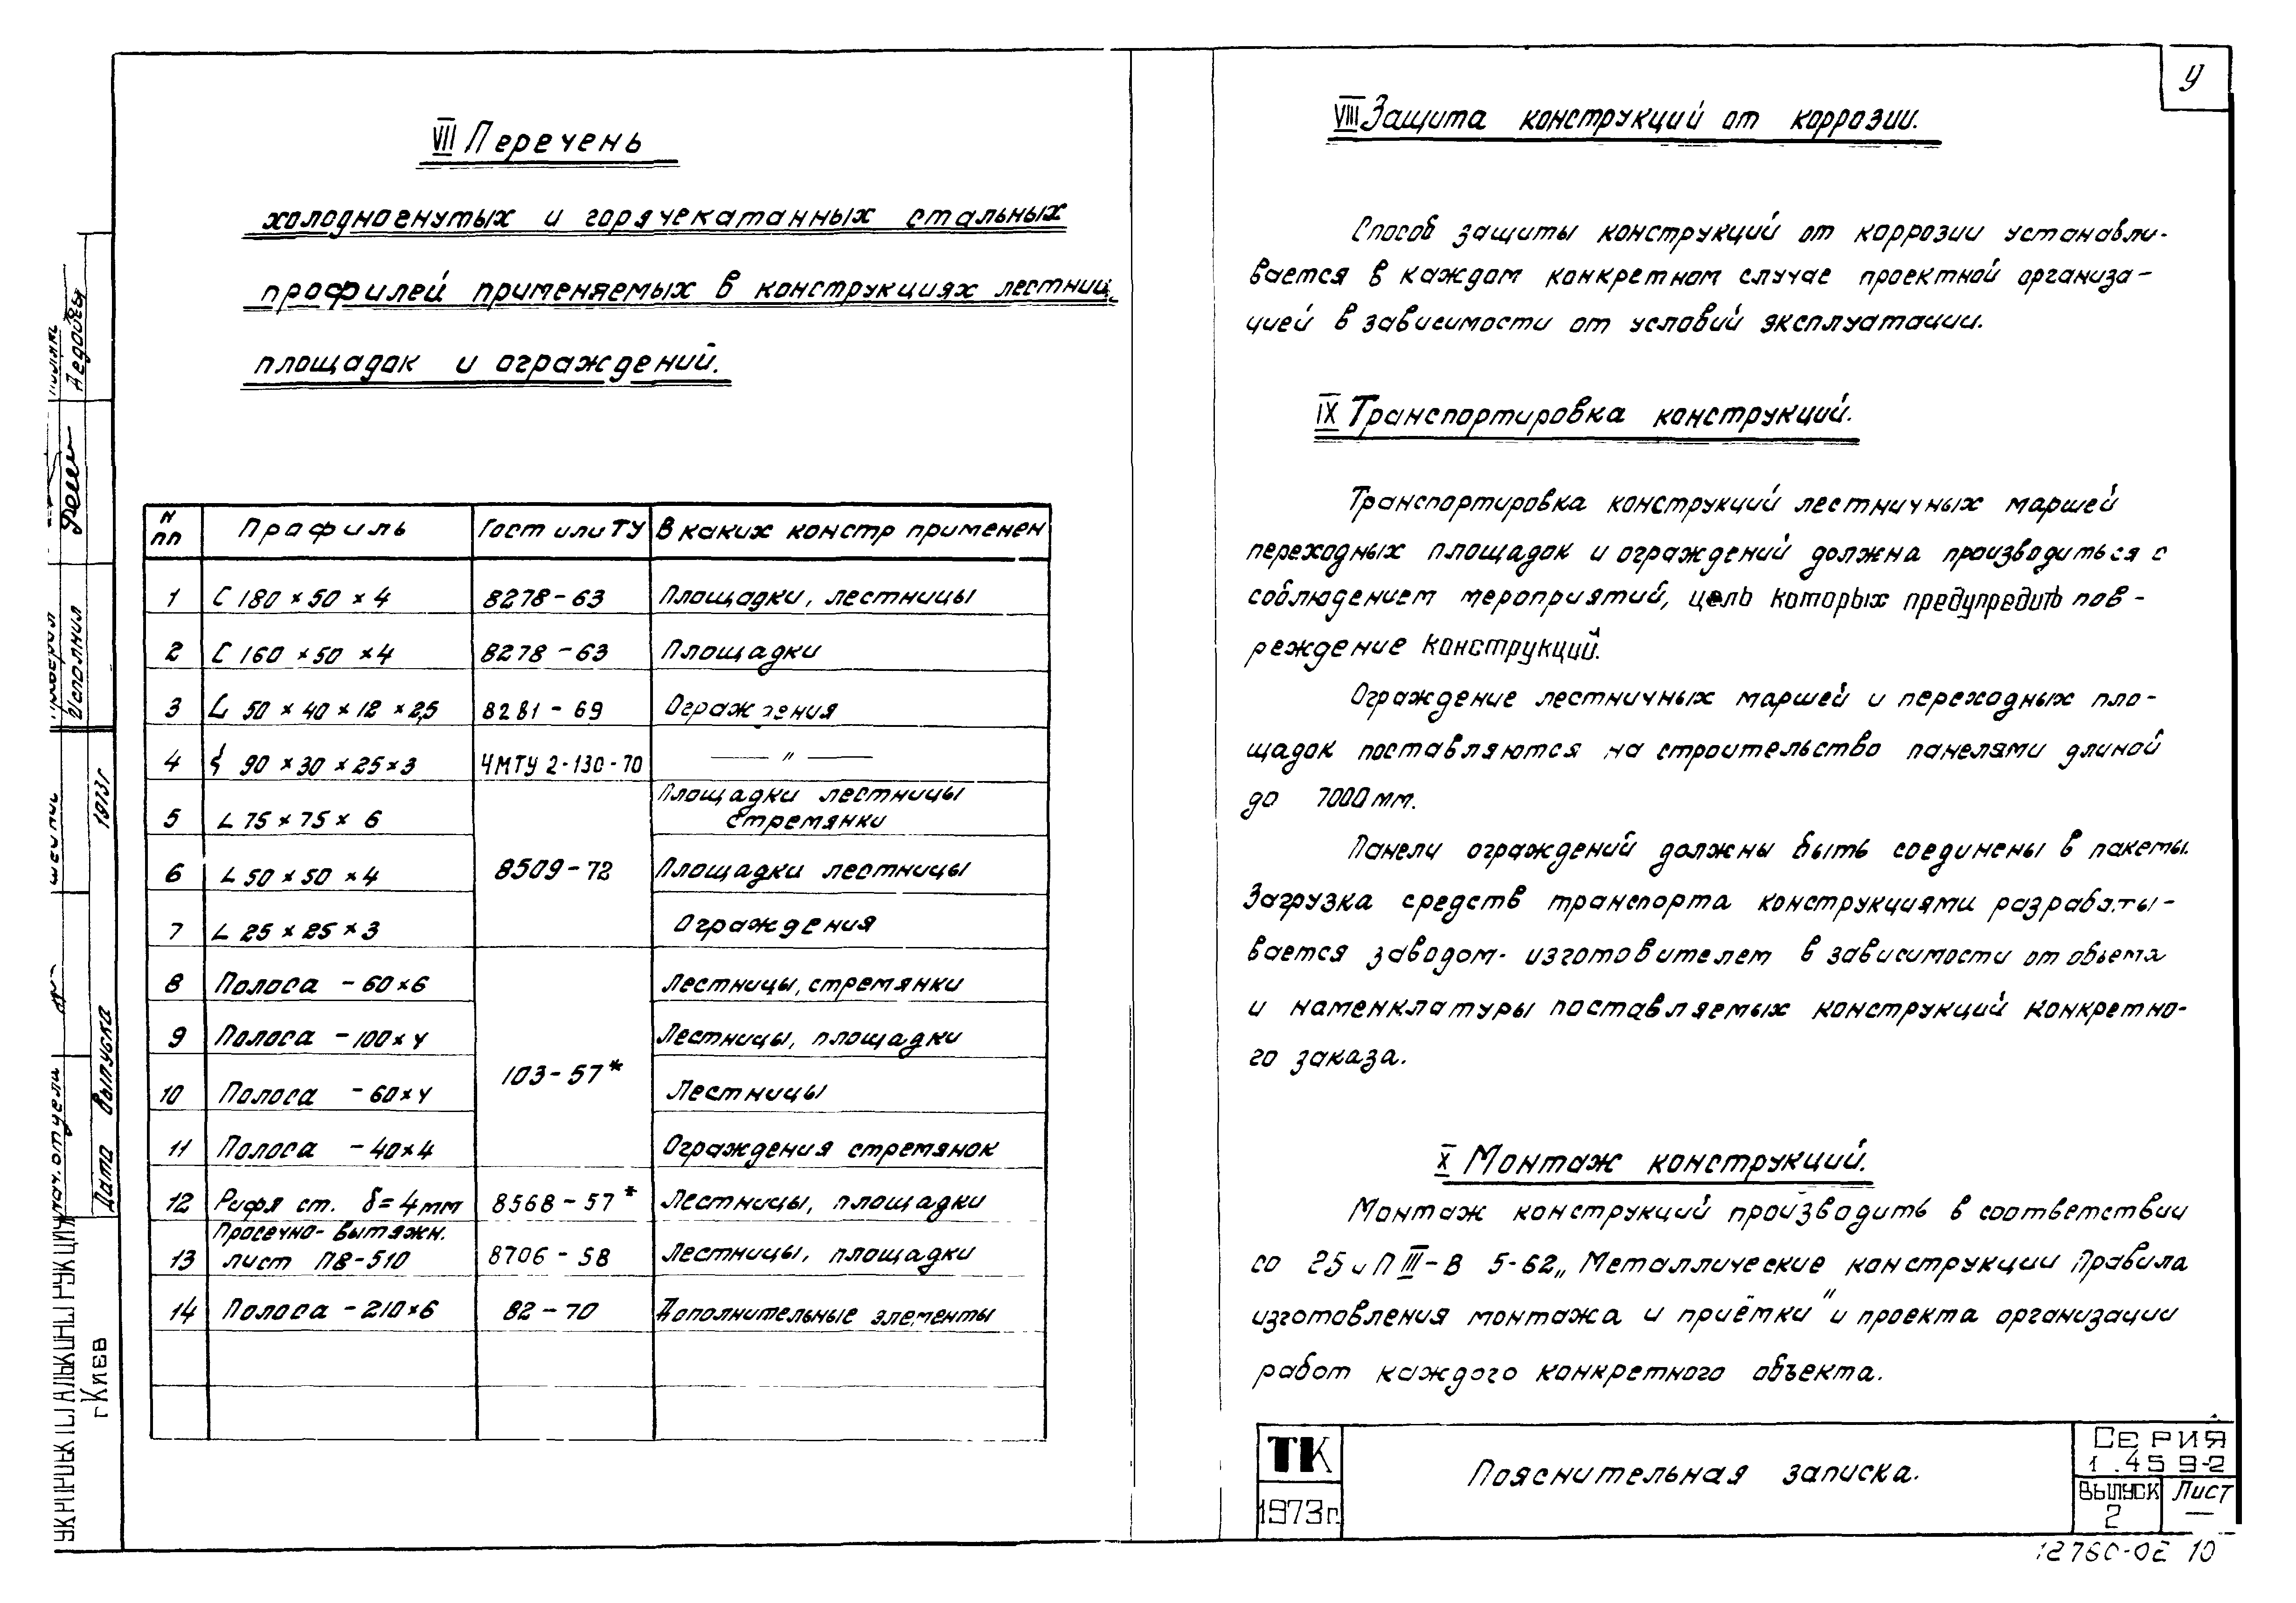 VII Перечень
холодногнутых и горячекатанных стальных
профилей применяемых в конструкциях лестниц,
площадок и ограждений.
N пп Профиль Гост или ТУ В каких констр применен
1 С 180 × 50 × 4 8278-63 Площадки, лестницы
2 С 160 × 50 × 4 8278-63 Площадки
3 L 50 × 40 × 12 × 2,5 8281-69 Ограждения
4 90 × 30 × 25 × 3 ЧМТУ 2-130-70 — " —
5 L 75 × 75 × 6 Площадки лестницы
стремянки
6 L 50 × 50 × 4 8509-72 Площадки лестницы
7 L 25 × 25 × 3 Ограждения
8 Полоса -60×6 Лестницы, стремянки
9 Полоса -100×4 Лестницы, площадки
103-57*
10 Полоса -60×4 Лестницы
11 Полоса -40×4 Ограждения стремянок
12 Рифл ст. δ=4мм 8568-57* Лестницы, площадки
Просечно-вытяжн.
13 лист ПВ-510 8706-58 Лестницы, площадки
14 Полоса -210×6 82-70 Дополнительные элементы
У
VIII Защита конструкций от коррозии.
Способ защиты конструкций от коррозии устанавли-
вается в каждом конкретном случае проектной организа-
цией в зависимости от условий эксплуатации.
IX Транспортировка конструкций.
Транспортировка конструкций лестничных маршей
переходных площадок и ограждений должна производиться с
соблюдением мероприятий, цель которых предупредить пов-
реждение конструкций.
Ограждение лестничных маршей и переходных пло-
щадок поставляются на строительство панелями длиной
до 7000мм.
Панели ограждений должны быть соединены в пакеты.
Загрузка средств транспорта конструкциями разрабаты-
вается заводом-изготовителем в зависимости от обьема
и наменклатуры поставляемых конструкций конкретно-
го заказа.
X Монтаж конструкций.
Монтаж конструкций производить в соответствии
со П III-В 5-62 „Металлические конструкции Правила
изготовления монтажа и приёмки" и проекта организации
работ каждого конкретного объекта.
ТК
1973г.
Пояснительная записка.
Серия
1.459-2
Выпуск
2
Лист
—
12760-02 10
Исполнил
Дата выпуска 1973г
г Киев